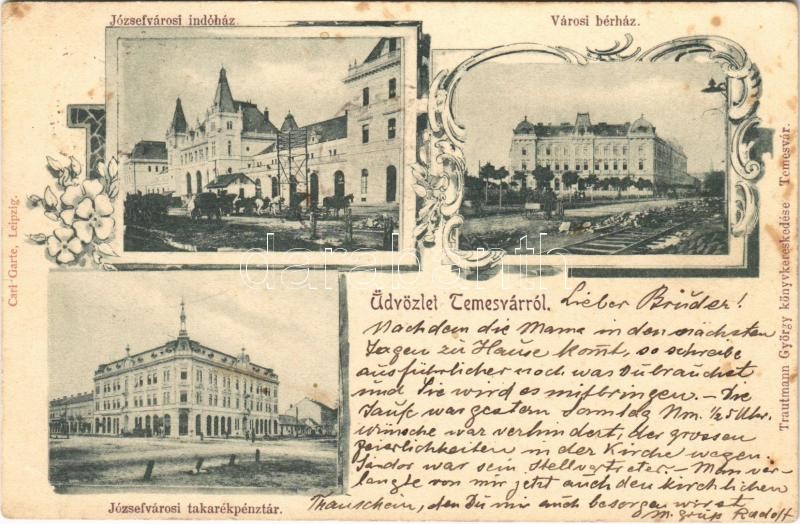 Józsefvárosi indóház.
Városi bérház.
Carl Garte, Leipzig.
Trautmann György könyvkereskedése Temesvár.
darabanth
Üdvözlet Temesvárról. Lieber Brüder!
Nachdem die Mama in den nächsten
Tagen zu Hause komt, so schreibe
ausführlicher noch was Du brauchst
und Sie wird es mitbringen. – Die
Taufe was gestern Samstag Nm. ½5 Uhr.
wünsche war verhindert, der grossen
Feierlichkeiten in der Kirche wegen.
Sándor war sein Stellvertreter. – Man ver-
langte von mir jetzt auch den kirchlichen
Trauschein, den Du mir auch besorgen wirst
Józsefvárosi takarékpénztár.